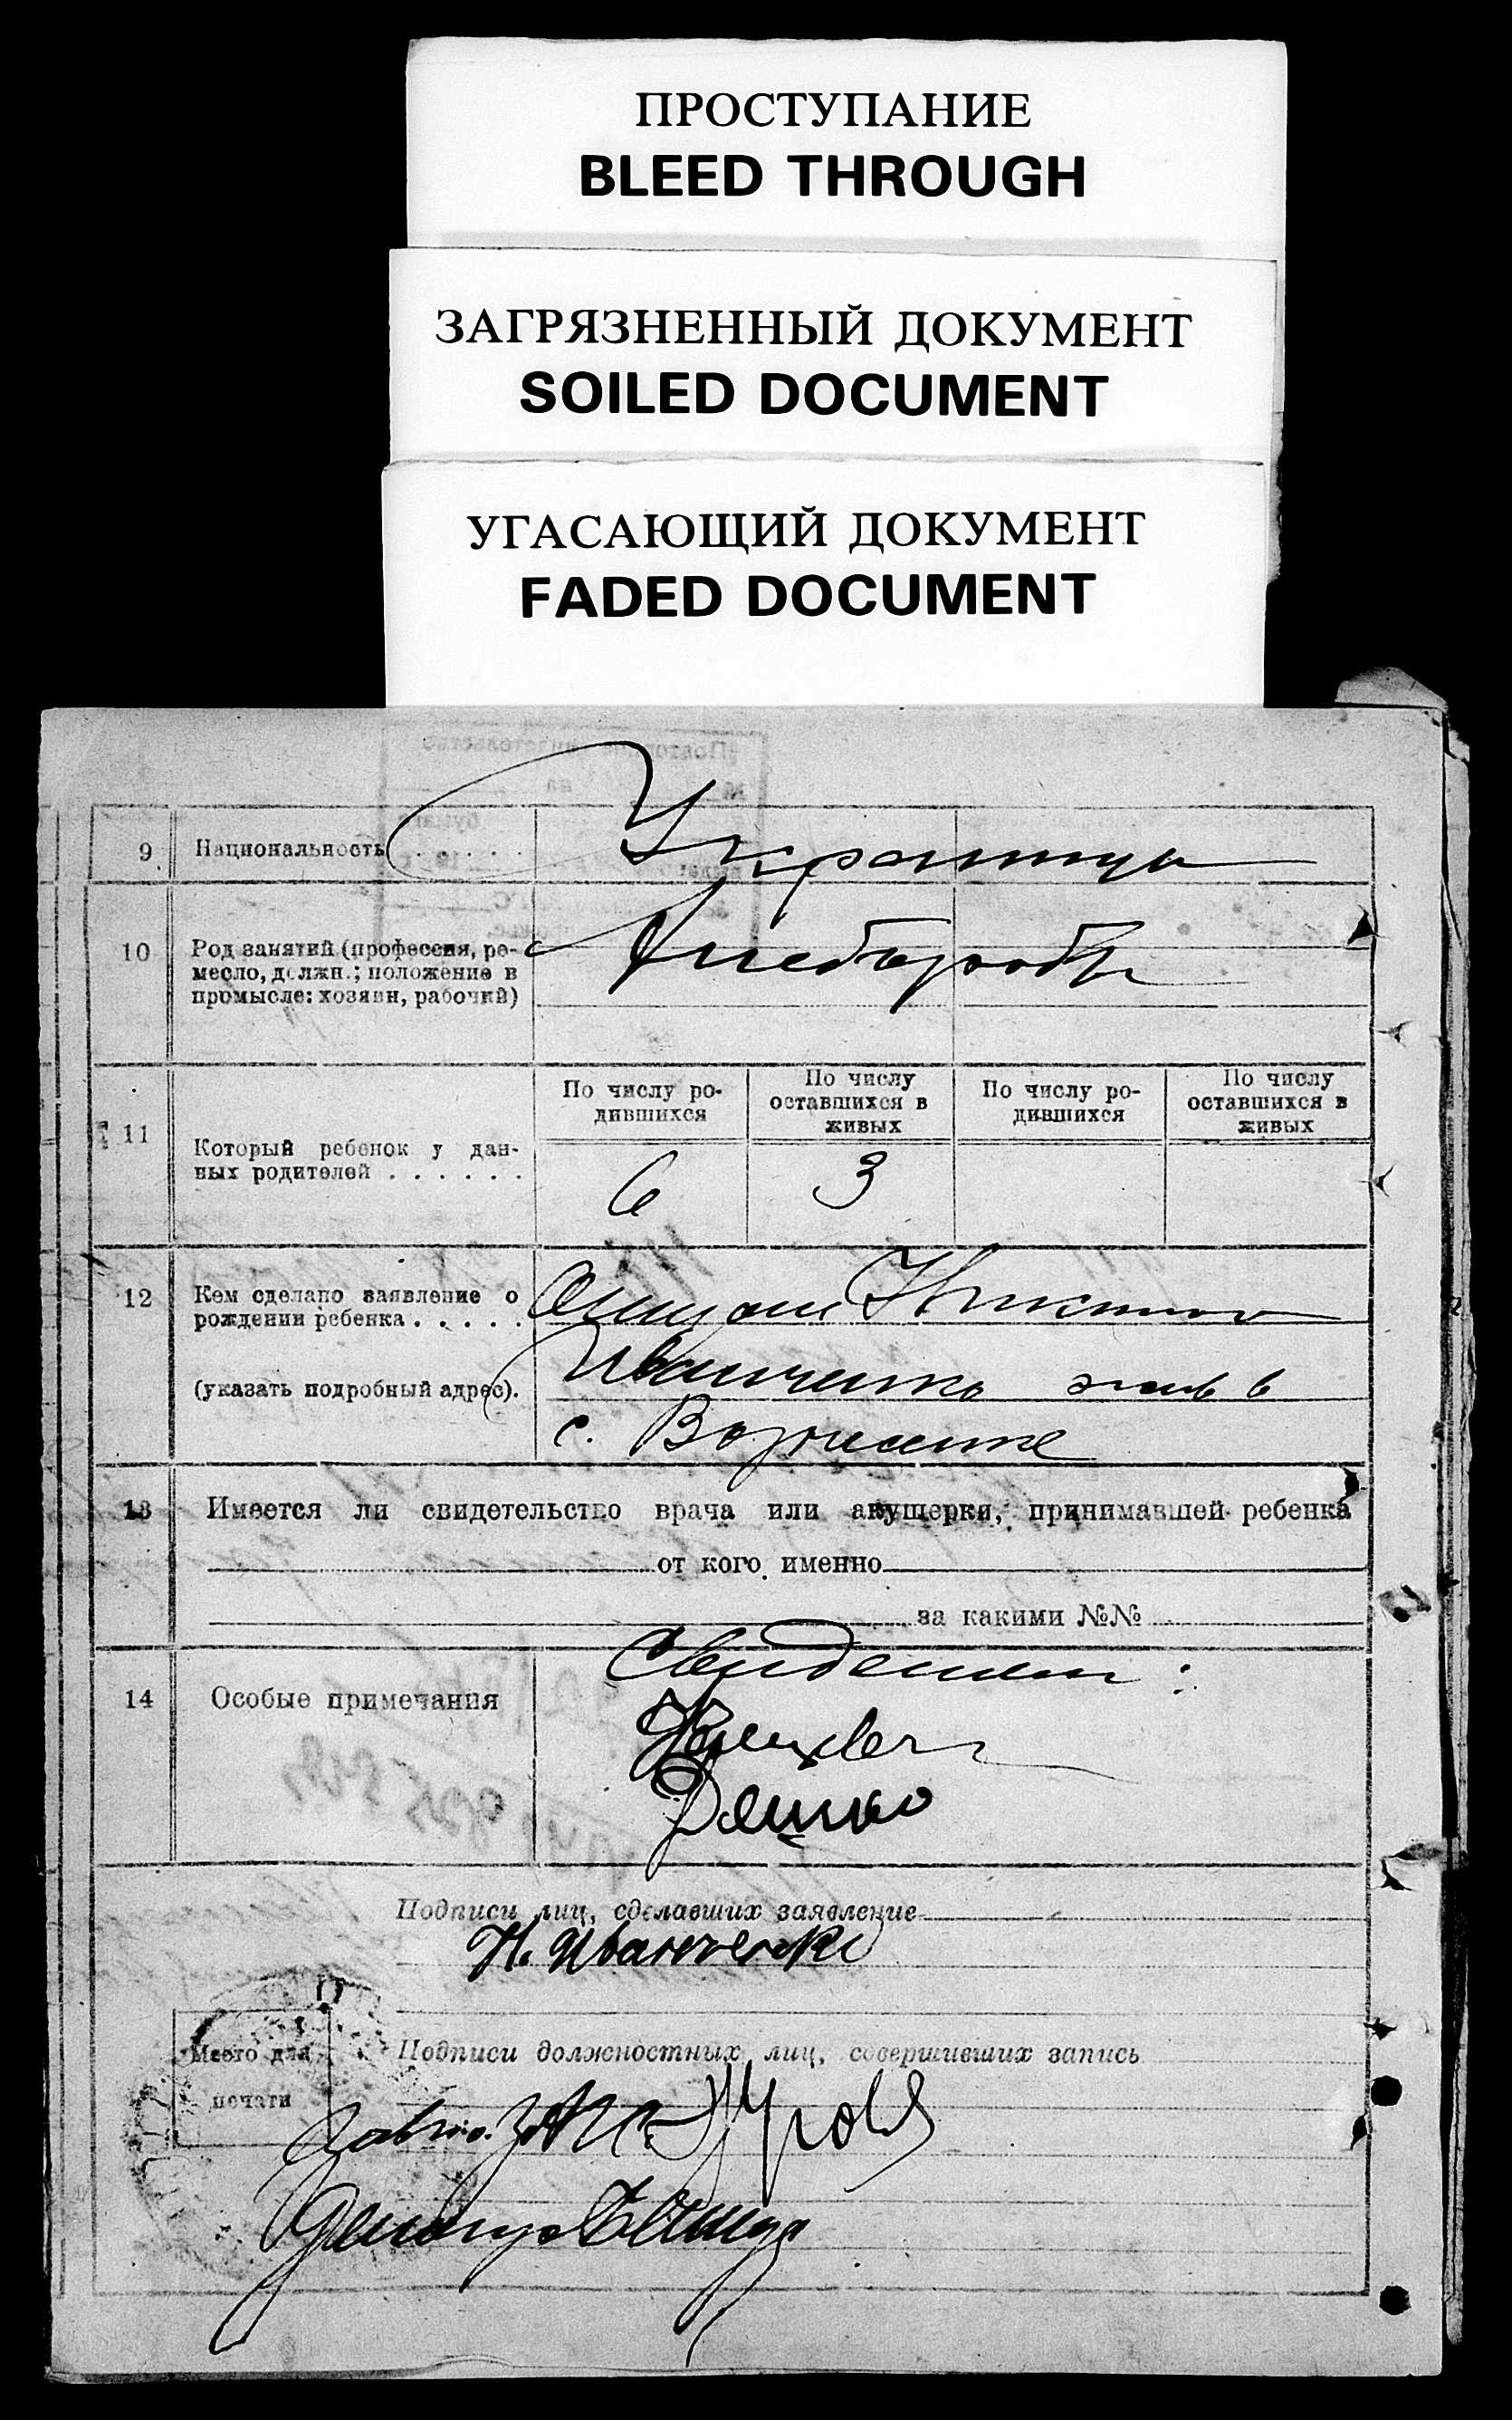 ПРОСТУПАНИЕ
BLEED THROUGH
ЗАГРЯЗНЕННЫЙ ДОКУМЕНТ
SOILED DOCUMENT
УГАСАЮЩИЙ ДОКУМЕНТ
FADED DOCUMENT
9 Национальность . . . . . . Украинцы
10 Род занятий (профессия, ре-
месло, должн.; положение в
промысле: хозяин, рабочий)
Хлеборобы
11 Который ребенок у дан-
ных родителей . . . . . .
По числу ро-
дившихся
По числу
оставшихся в
живых
По числу ро-
дившихся
По числу
оставшихся в
живых
6 3
12 Кем сделано заявление о
рождении ребенка . . . . .
(указать подробный адрес).
Отцом Никитою
Иванченко жив в
с.
13 Имеется ли свидетельство врача или акушерки, принимавшей ребенка
от кого именно
за какими №№
14 Особые примечания
Свидетели:
Подписи лиц, сделавших заявление
Н. Иванченко
Место для
печати
Подписи должностных лиц, совершивших запись